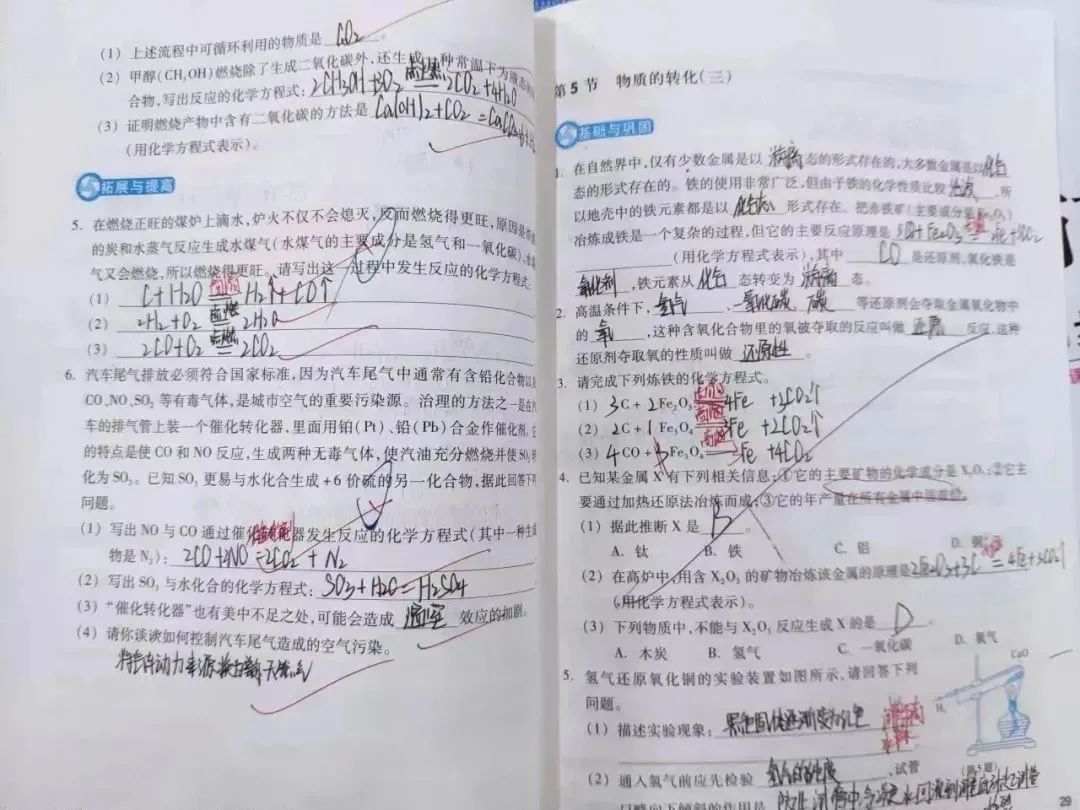 (1) 上述流程中可循环利用的物质是 CO₂ 。
(2) 甲醇(CH₃OH)燃烧除了生成二氧化碳外,还生成 种常温下为液态的
合物,写出反应的化学方程式: 2CH₃OH+3O₂ 点燃 2CO₂+4H₂O
(3) 证明燃烧产物中含有二氧化碳的方法是 Ca(OH)₂+CO₂=CaCO₃↓+H
(用化学方程式表示)。
拓展与提高
5. 在燃烧正旺的煤炉上滴水,炉火不仅不会熄灭,反而燃烧得更旺,原因是
的炭和水蒸气反应生成水煤气(水煤气的主要成分是氢气和一氧化碳),水
气又会燃烧,所以燃烧得更旺。请写出这一过程中发生反应的化学方程式:
(1) C+H₂O 高温 H₂↑+CO↑
(2) 2H₂+O₂ 点燃 2H₂O
(3) 2CO+O₂ 点燃 2CO₂
6. 汽车尾气排放必须符合国家标准,因为汽车尾气中通常有含铅化合物以及
CO、NO、SO₂ 等有毒气体,是城市空气的重要污染源。治理的方法之一是在汽
车的排气管上装一个催化转化器,里面用铂(Pt)、铅(Pb)合金作催化剂。它
的特点是使 CO 和 NO 反应,生成两种无毒气体,使汽油充分燃烧并使SO₂
化为SO₃。已知SO₃ 更易与水化合生成+6 价硫的另一化合物,据此回答下列
问题。
(1) 写出 NO 与 CO 通过催化 器发生反应的化学方程式(其中一种生成
物是 N₂): 2CO+2NO=2CO₂+N₂
(2) 写出 SO₃ 与水化合的化学方程式: SO₃+H₂O=H₂SO₄
(3) “催化转化器”也有美中不足之处,可能会造成 温室 效应的加剧。
(4) 请你谈谈如何控制汽车尾气造成的空气污染。
将汽车动力来源换为 天然气
第 5 节 物质的转化(三)
基础与巩固
1. 在自然界中,仅有少数金属是以 游离 态的形式存在的,大多数金属是以 化合
态的形式存在的。铁的使用非常广泛,但由于铁的化学性质比较 活泼 ,所
以地壳中的铁元素都是以 化合态 形式存在。把赤铁矿(主要成分是Fe₂O₃)
冶炼成铁是一个复杂的过程,但它的主要反应原理是 3CO+Fe₂O₃ 高温 2Fe+3CO₂
(用化学方程式表示),其中 CO 是还原剂,氧化铁是
氧化剂 ,铁元素从 化合 态转变为 游离 态。
2. 高温条件下, 氢气 、 一氧化碳 、 碳 等还原剂会夺取金属氧化物中
的 氧 ,这种含氧化合物里的氧被夺取的反应叫做 还原 反应,这种
还原剂夺取氧的性质叫做 还原性 。
3. 请完成下列炼铁的化学方程式。
(1) 3C+2Fe₂O₃ 高温 4Fe +3CO₂↑
(2) 2C+1Fe₃O₄ 高温 3Fe +2CO₂↑
(3) 4CO+ Fe₃O₄ 高温 3Fe +4CO₂
4. 已知某金属 X 有下列相关信息:①它的主要矿物的化学成分是 X₂O₃;②它主
要通过加热还原法冶炼而成;③它的年产量在所有金属中居首位。
(1) 据此推断 X 是 B 。
A. 钛 B. 铁 C. 铝 D. 铜
(2) 在高炉中,用含 X₂O₃ 的矿物冶炼该金属的原理是 2Fe₂O₃+3C 高温 4Fe+3CO₂↑
(用化学方程式表示)。
(3) 下列物质中,不能与 X₂O₃ 反应生成 X 的是 D 。
A. 木炭 B. 氢气 C. 一氧化碳 D. 氧气
5. 氢气还原氧化铜的实验装置如图所示,请回答下列
问题。
CuO
H₂
(1) 描述实验现象: 黑色固体逐渐变为红色
(第5题)
(2) 通入氢气前应先检验 氢气的纯度 ,试管
口略向下倾斜的作用是 防止试管中冷凝水回流到
29